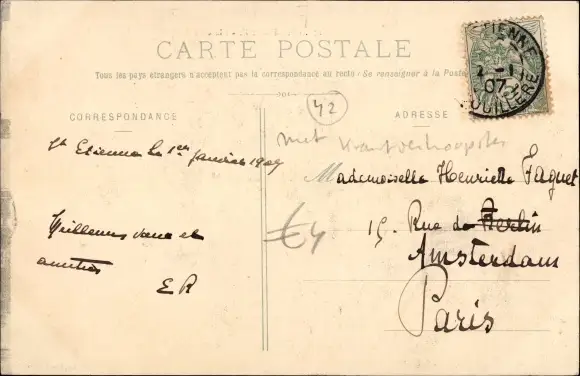 CARTE POSTALE
Tous les pays étrangers n'acceptent pas la correspondance au recto - Se renseigner à la Poste
CORRESPONDANCE
ADRESSE
42
met
St Etienne le 1er janvier 1907
Meilleurs vœux et
amitiés
E R
€4
Mademoiselle Henriette Faguet
15. Rue de Berlin
Amsterdam
Paris
ETIENNE
2 - 1
07